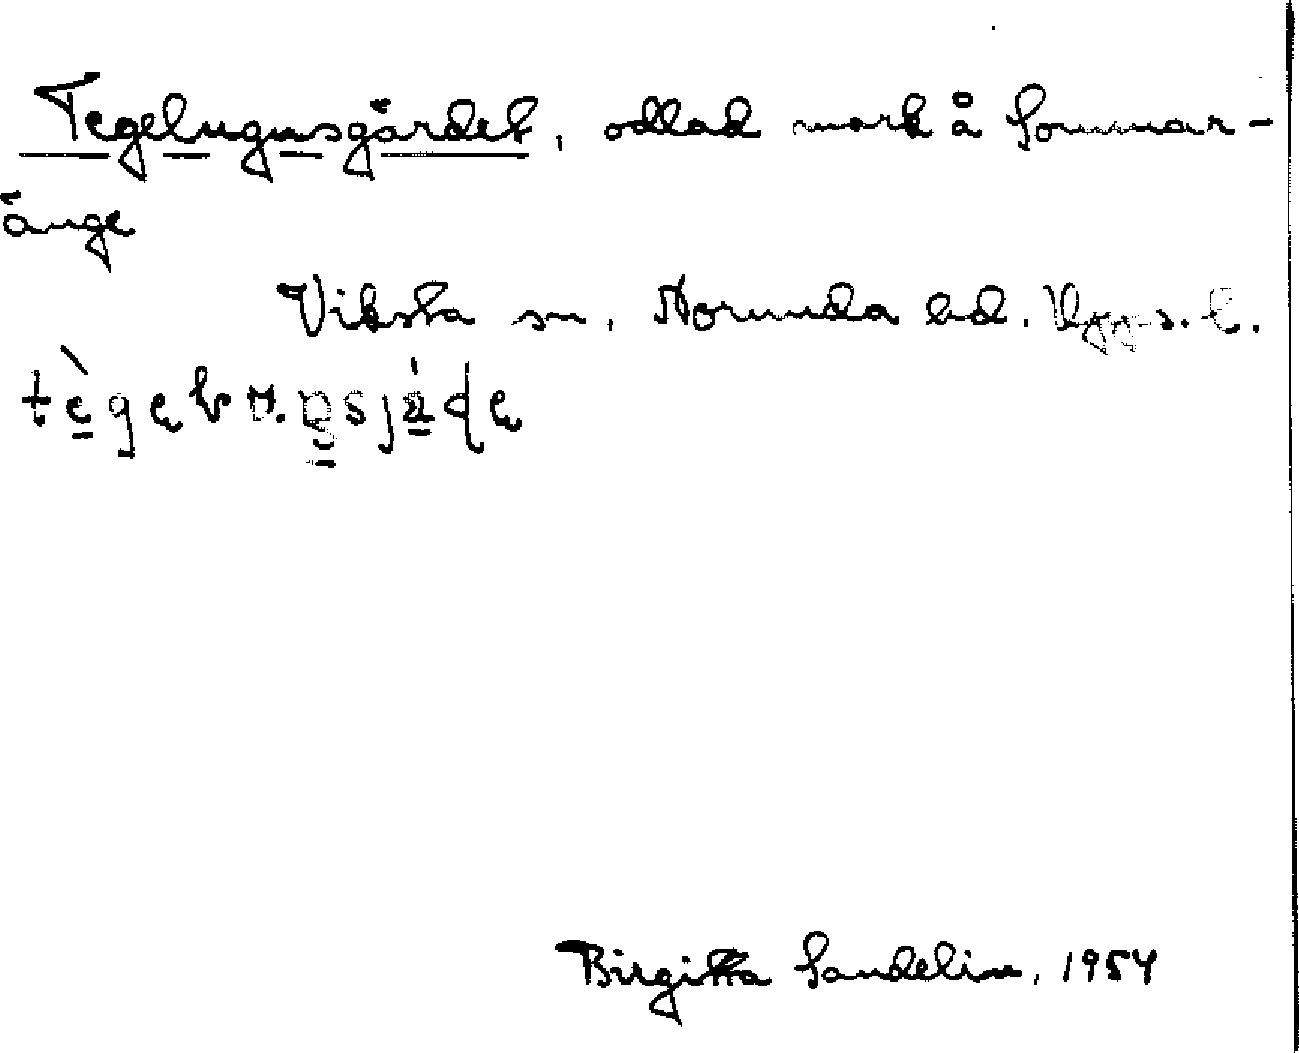 Tegelugnsgärdet, odlad mark å Sommar-
änge
Viksta sn, Norunda hd. Upps. l.
Birgitta Sandelin, 1954